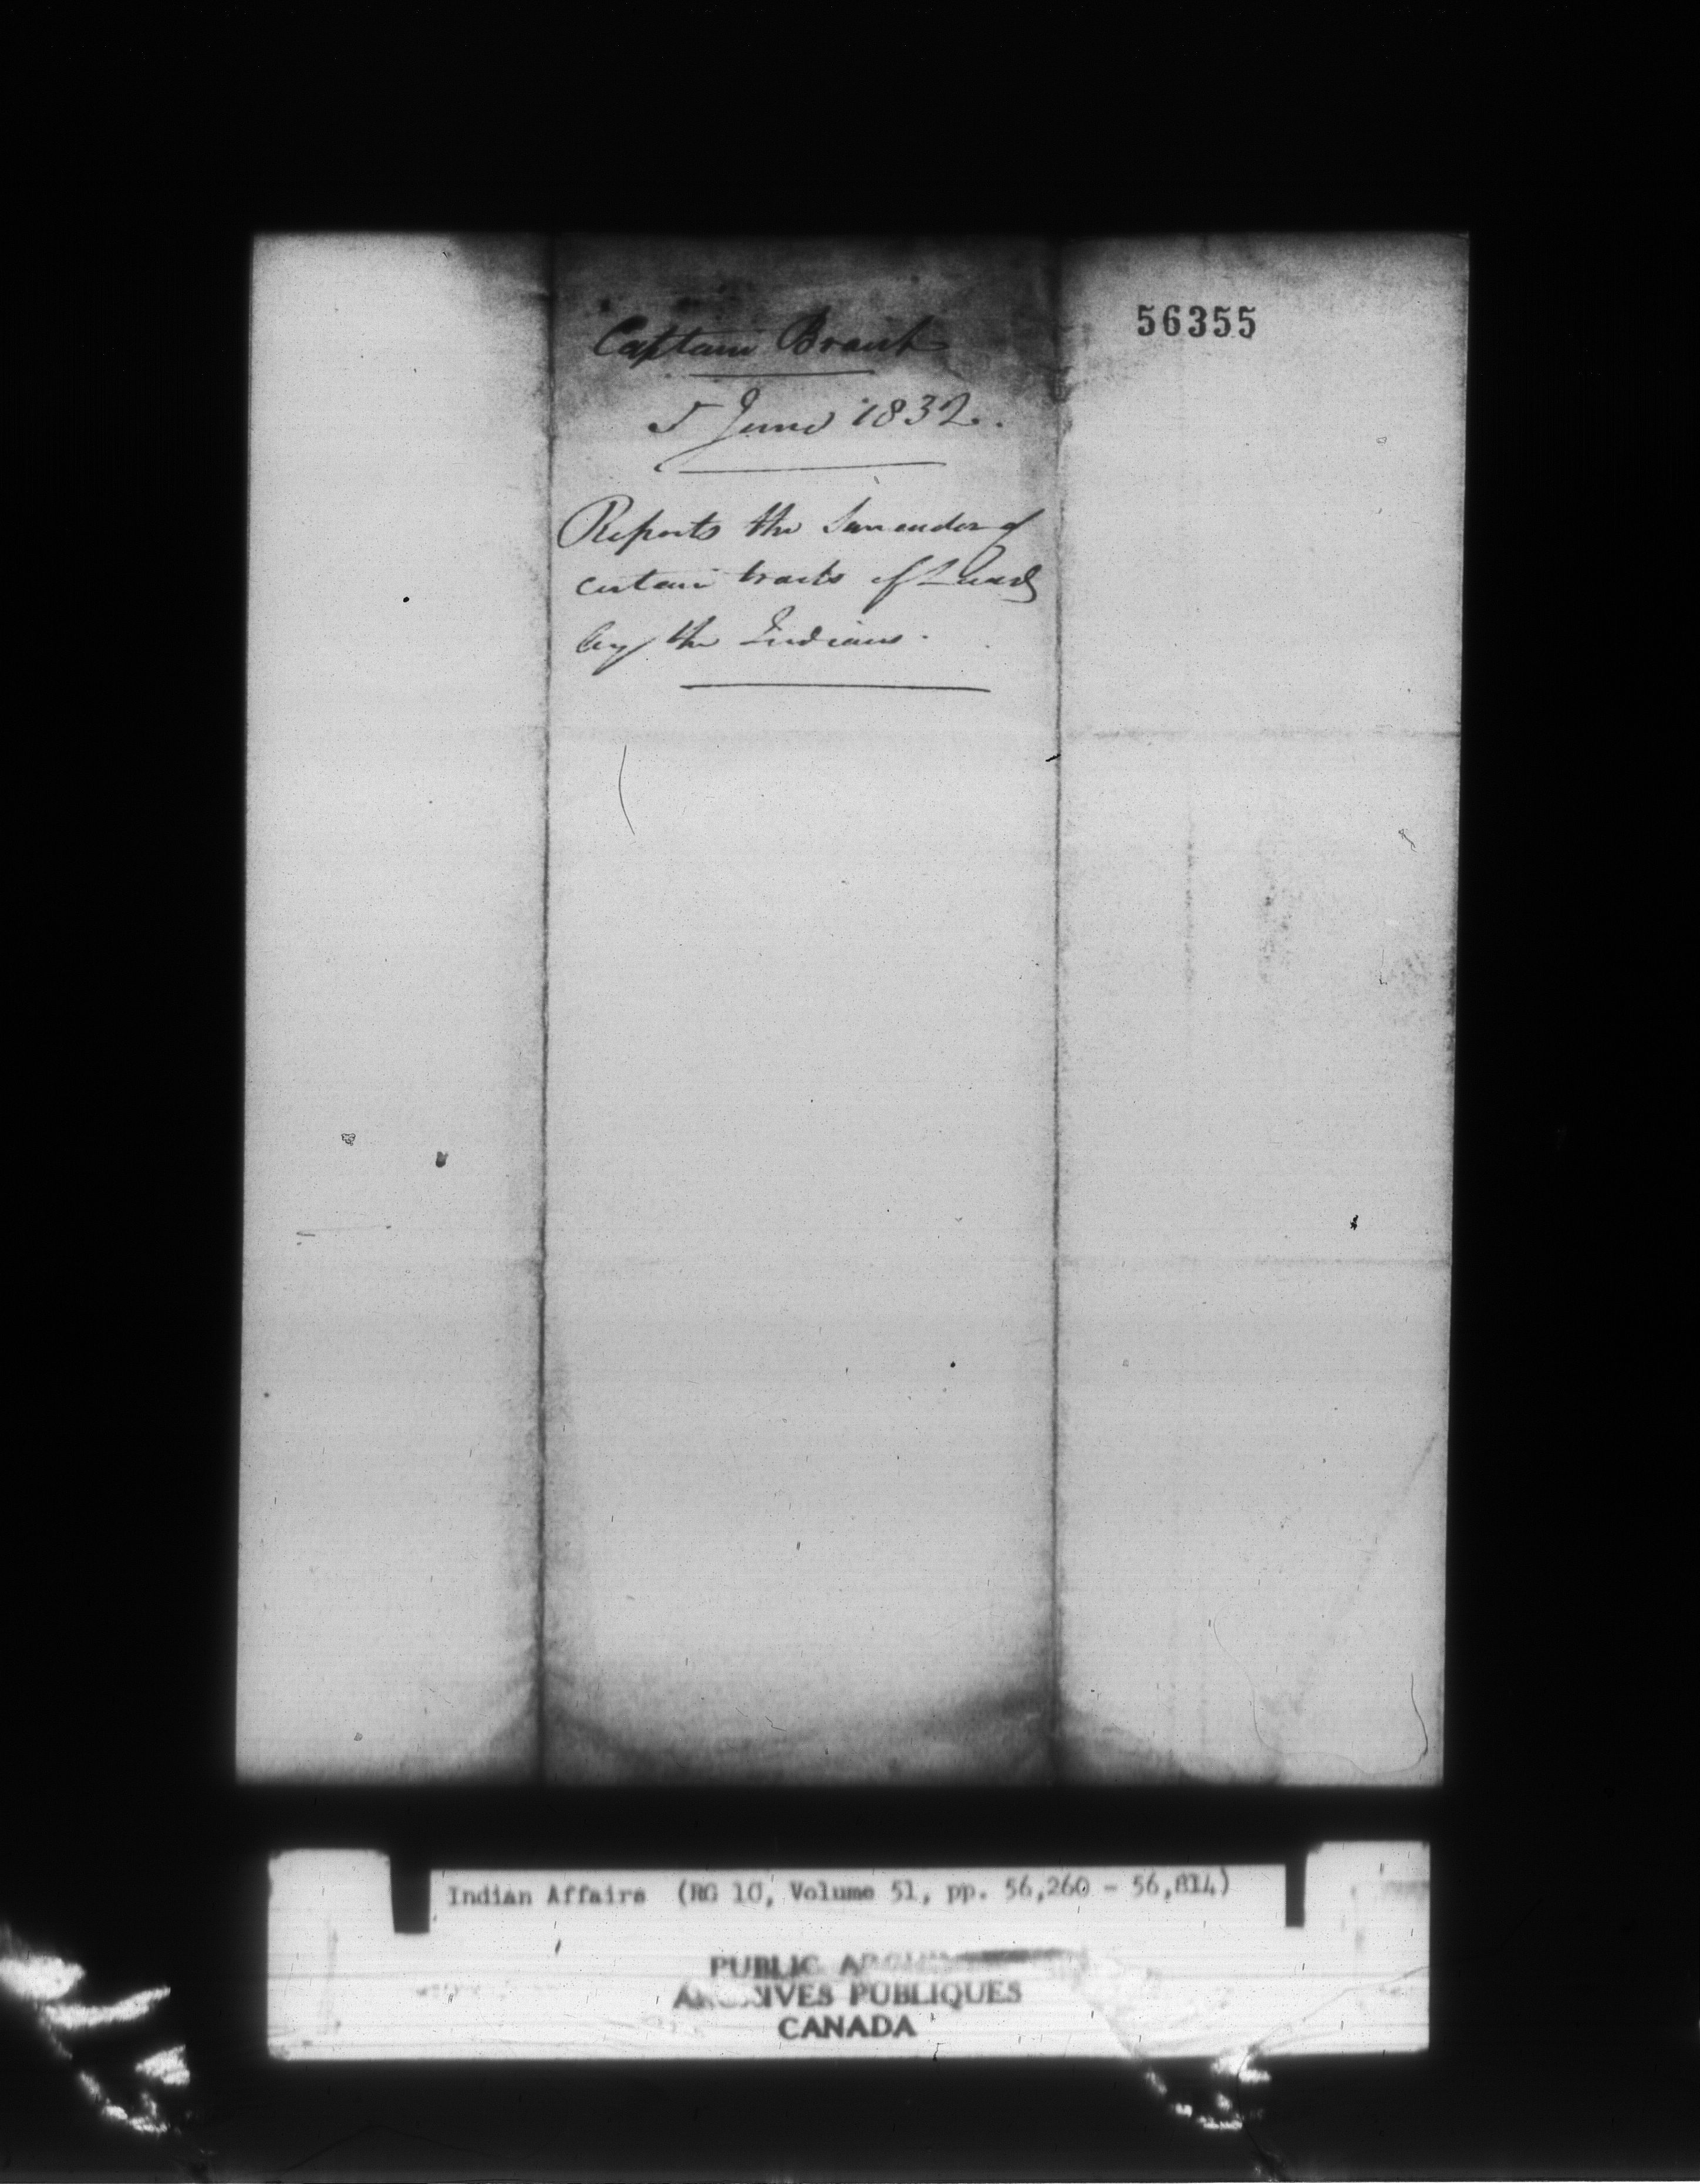 Captain Brant
5 June 1832.
Reports the Surrender of
certain tracts of Land
by the Indians.
56355
Indian Affairs (RG 10, Volume 51, pp. 56,260 - 56,814)
PUBLIC
ARCHIVES PUBLIQUES
CANADA